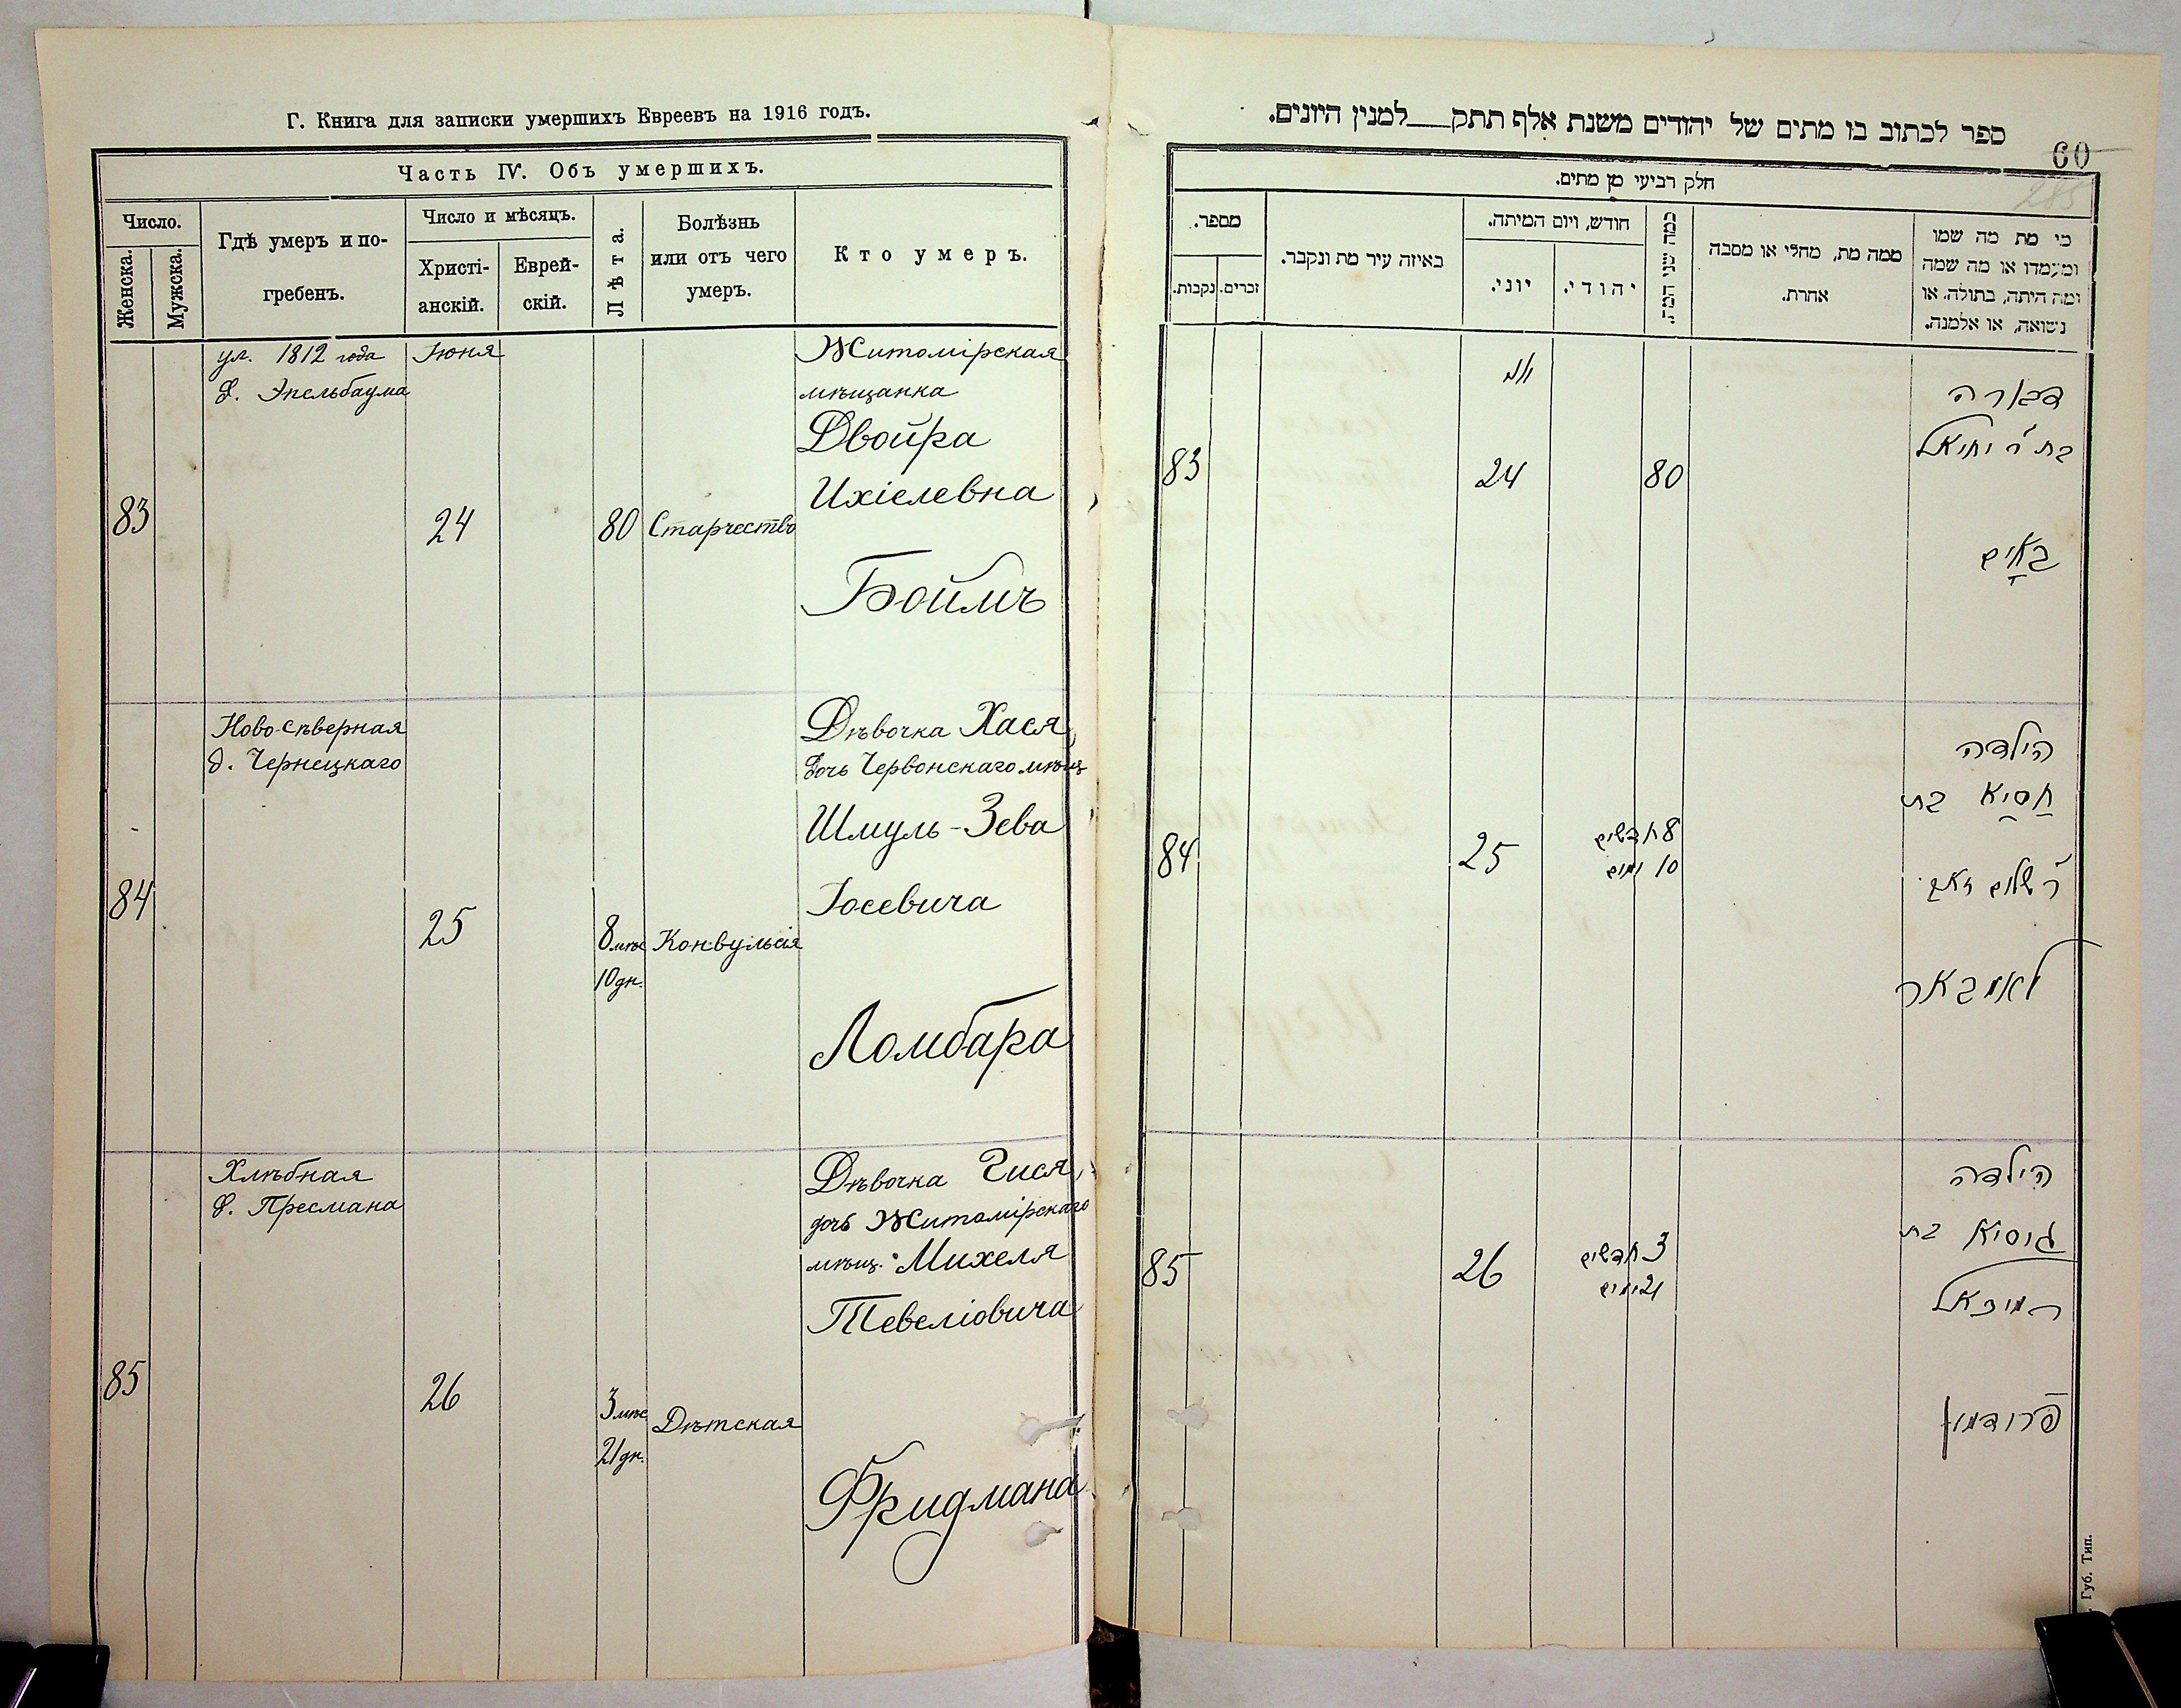 Г. Книга для записки умершихъ Евреевъ на 1916 годъ.
Часть IV. Объ умершихъ.
Число.
Женска.
Мужска.
Гдѣ умеръ и по-
гребенъ.
Число и мѣсяцъ.
Христі-
анскій.
Еврей-
скій.
Лѣта.
Болѣзнь
или отъ чего
умеръ.
Кто умеръ.
ул. 1812 года
д. Эпельбаума
Іюня
83
24
80
Старчество
Житомірская
мѣщанка
Двойра
Ихіелевна
Боймъ
Ново-Сѣверная
д. Чернецкаго
84
25
8 мѣс
10 дн.
Конвульсія
Дѣвочка Хася,
дочь Червонскаго мѣщ
Шмуль-Зева
Іосевича
Ломбара
Хлѣбная
д. Пресмана
85
26
3 мѣс
21 дн.
Дѣтская
Дѣвочка Гися,
дочь Житомірскаго
мѣщ. Михеля
Тевеліовича
Фридмана
ספר לכתוב בו מתים של יהודים משנת אלף תתק__למנין היונים.
60
285
חלק רביעי מן מתים.
מי מת מה שמו
ומעמדו או מה שמה
ומה היתה, בתולה, או
נישואה, או אלמנה.
ממה מת, מחלי או מסבה
אחרת.
כמה שני המת.
חודש, ויום המיתה.
יהודי.
יוני.
באיזה עיר מת ונקבר.
מספר.
זכרים.
נקבות.
דבורה
בת ר' יחיאל
באים
80
24
83
הילדה
חסיא בת
לאמבאר
8 חדשים
10 ימים
25
84
הילדה
גיסיא בת
פרידמאן
3 חדשים
21 ימים
26
85
Губ. Тип.